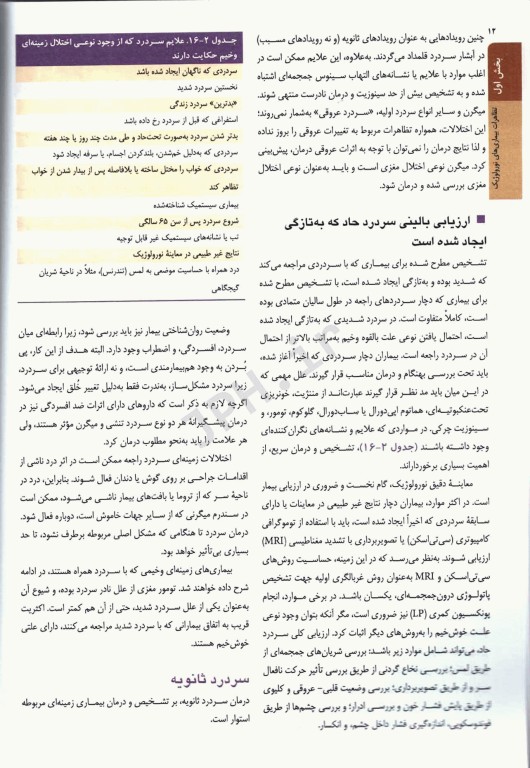 ۱۲
بخش اول
تظاهرات بیماری‌های نورولوژیک
چنین رویدادهایی به عنوان رویدادهای ثانویه (و نه رویدادهای مسبب)
در آبشار سردرد قلمداد می‌گردند. به‌علاوه، این علایم ممکن است در
اغلب موارد با علایم یا نشانه‌های التهاب سینوس جمجمه‌ای اشتباه
شده و به تشخیص بیش از حد سینوزیت و درمان نادرست منتهی شوند.
میگرن و سایر انواع سردرد اولیه، «سردرد عروقی» به‌شمار نمی‌روند؛
این اختلالات، همواره تظاهرات مربوط به تغییرات عروقی را بروز نداده
و لذا نتایج درمان را نمی‌توان با توجه به اثرات عروقی درمان، پیش‌بینی
کرد. میگرن نوعی اختلال مغزی است و باید به‌عنوان نوعی اختلال
مغزی بررسی شده و درمان شود.
ارزیابی بالینی سردرد حاد که به‌تازگی
ایجاد شده است
تشخیص مطرح شده برای بیماری که با سردردی مراجعه می‌کند
که شدید بوده و به‌تازگی ایجاد شده است، با تشخیص مطرح شده
برای بیماری که دچار سردردهای راجعه در طول سالیان متمادی بوده
است، کاملاً متفاوت است. در سردرد شدیدی که به‌تازگی ایجاد شده
است، احتمال یافتن نوعی علت بالقوه وخیم به‌مراتب بالاتر از احتمال
آن در سردرد راجعه است. بیماران دچار سردردی که اخیراً آغاز شده،
باید تحت بررسی بهنگام و درمان مناسب قرار گیرند. علل مهمی که
در این میان باید مد نظر قرار گیرند عبارت‌اند از مننژیت، خونریزی
تحت‌عنکبوتیه‌ای، هماتوم اپی‌دورال یا ساب‌دورال، گلوکوم، تومور، و
سینوزیت چرکی. در مواردی که علایم و نشانه‌های نگران‌کننده‌ای
وجود داشته باشند (جدول ۲-۱۶)، تشخیص و درمان سریع، از
اهمیت بسیاری برخورداراند.
معاینهٔ دقیق نورولوژیک، گام نخست و ضروری در ارزیابی بیمار
است. در اکثر موارد، بیماران دچار نتایج غیر طبیعی در معاینات یا دارای
سابقهٔ سردردی که اخیراً ایجاد شده است، باید با استفاده از توموگرافی
کامپیوتری (سی‌تی‌اسکن) یا تصویربرداری با تشدید مغناطیسی (MRI)
ارزیابی شوند. به‌نظر می‌رسد که در این زمینه، حساسیت روش‌های
سی‌تی‌اسکن و MRI به‌عنوان روش غربالگری اولیه جهت تشخیص
پاتولوژی درون‌جمجمه‌ای، یکسان باشد. در برخی موارد، انجام
پونکسیون کمری (LP) نیز ضروری است، مگر آنکه بتوان وجود نوعی
علت خوش‌خیم را به‌روش‌های دیگر اثبات کرد. ارزیابی کلی سردرد
حاد، می‌تواند شامل موارد زیر باشد: بررسی شریان‌های جمجمه‌ای از
طریق لمس؛ بررسی نخاع گردنی از طریق بررسی تأثیر حرکت نافعال
سر و از طریق تصویربرداری؛ بررسی وضعیت قلبی-عروقی و کلیوی
از طریق پایش فشار خون و بررسی ادرار؛ و بررسی چشم‌ها از طریق
فوندوسکوپی، اندازه‌گیری فشار داخل چشم، و انکسار.
جدول ۲-۱۶. علایم سردرد که از وجود نوعی اختلال زمینه‌ای
وخیم حکایت دارند
سردردی که ناگهان ایجاد شده باشد
نخستین سردرد شدید
«بدترین» سردرد زندگی
استفراغی که قبل از سردرد رخ داده باشد
بدتر شدن سردرد به‌صورت تحت‌حاد و طی مدت چند روز یا چند هفته
سردردی که به‌دلیل خم‌شدن، بلندکردن اجسام، یا سرفه ایجاد شود
سردردی که خواب را مختل ساخته یا بلافاصله پس از بیدار شدن از خواب
تظاهر کند
بیماری سیستمیک شناخته‌شده
شروع سردرد پس از سن ۶۵ سالگی
تب یا نشانه‌های سیستمیک غیر قابل توجیه
نتایج غیر طبیعی در معاینهٔ نورولوژیک
درد همراه با حساسیت موضعی به لمس (تندرنس)، مثلاً در ناحیهٔ شریان
گیجگاهی
وضعیت روان‌شناختی بیمار نیز باید بررسی شود، زیرا رابطه‌ای میان
سردرد، افسردگی، و اضطراب وجود دارد. البته هدف از این کار، پی
بُردن به وجود هم‌بیمارمندی است، و نه ارائهٔ توجیهی برای سردرد،
زیرا سردرد مشکل‌ساز، به‌ندرت فقط به‌دلیل تغییر خُلق ایجاد می‌شود.
اگرچه لازم به ذکر است که داروهای دارای اثرات ضد افسردگی نیز در
درمان پیشگیرانهٔ هر دو نوع سردرد تنشی و میگرن مؤثر هستند، ولی
هر علامت را باید به‌نحو مطلوب درمان کرد.
اختلالات زمینه‌ای سردرد راجعه ممکن است در اثر درد ناشی از
اقدامات جراحی بر روی گوش یا دندان فعال شوند. بنابراین، درد در
ناحیهٔ سر که از تروما یا بافت‌های بیمار ناشی می‌شود، ممکن است
در سندرم میگرنی که از سایر جهات خاموش است، دوباره فعال شود.
درمان سردرد تا هنگامی که مشکل اصلی مربوطه برطرف نشود، تا حد
بسیاری بی‌تأثیر خواهد بود.
بیماری‌های زمینه‌ای وخیمی که با سردرد همراه هستند، در ادامه
شرح داده خواهند شد. تومور مغزی از علل نادر سردرد بوده، و شیوع آن
به‌عنوان یکی از علل سردرد شدید، حتی از آن هم کمتر است. اکثریت
قریب به اتفاق بیمارانی که با سردرد شدید مراجعه می‌کنند، دارای علتی
خوش‌خیم هستند.
سردرد ثانویه
درمان سردرد ثانویه، بر تشخیص و درمان بیماری زمینه‌ای مربوطه
استوار است.